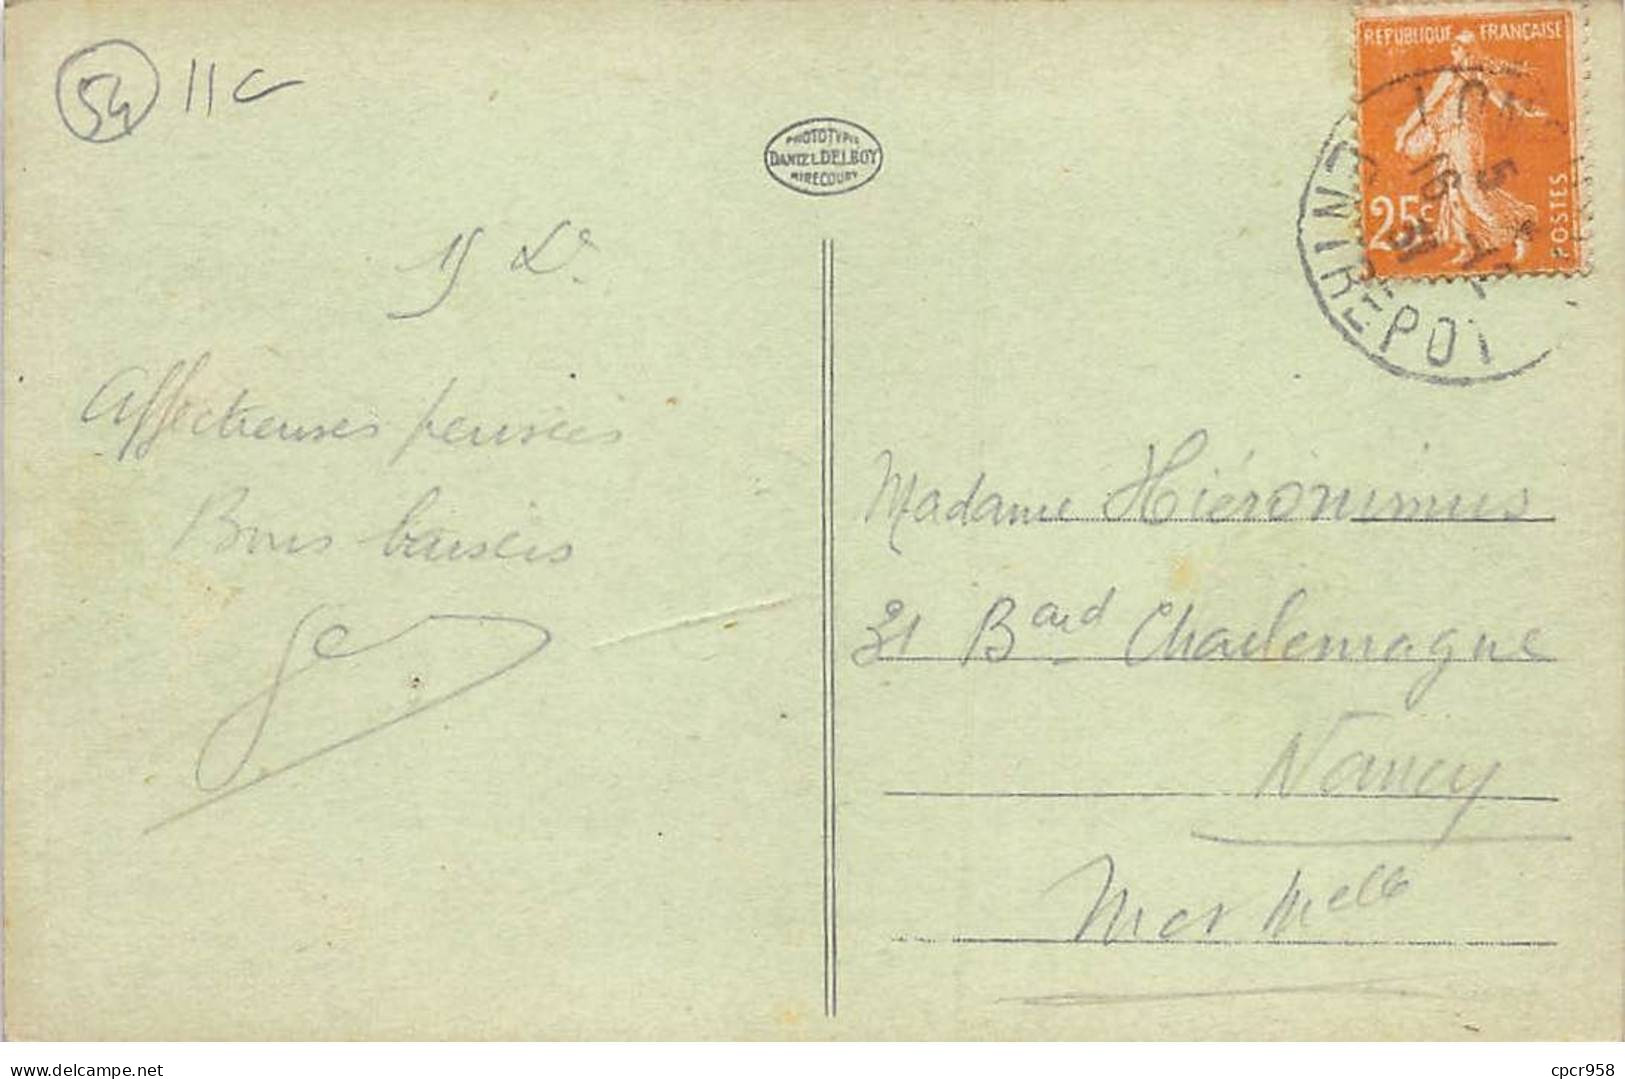 54 11c
PHOTOTYPIE
DANIEL DELBOY
MIRECOURT
REPUBLIQUE FRANÇAISE
25c
POSTES
15 Xe
Affectueuses pensées
Bons baisers
Madame Hiéronimus
21 Bard Charlemagne
Nancy
Mer Melle
cpcr958